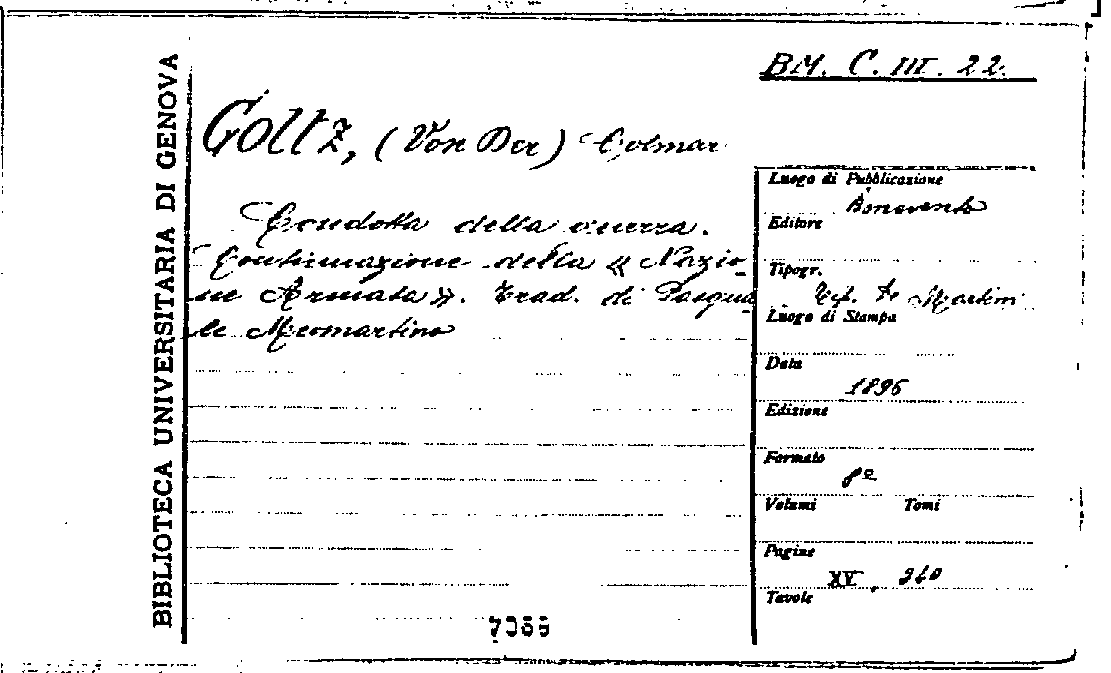 BIBLIOTECA UNIVERSITARIA DI GENOVA
BM. C. III. 22.
Goltz, (Von Der) Colmar
Condotta della guerra.
Continuazione della « Nazio-
ne Armata ». Trad. di Pasqua-
le Meomartino
Luogo di Pubblicazione
Benevento
Editore
Tipogr.
Tip. De Martini
Luogo di Stampa
Data
1896
Edizione
Formato
8º
Volumi Tomi
Pagine
XV, 260
Tavole